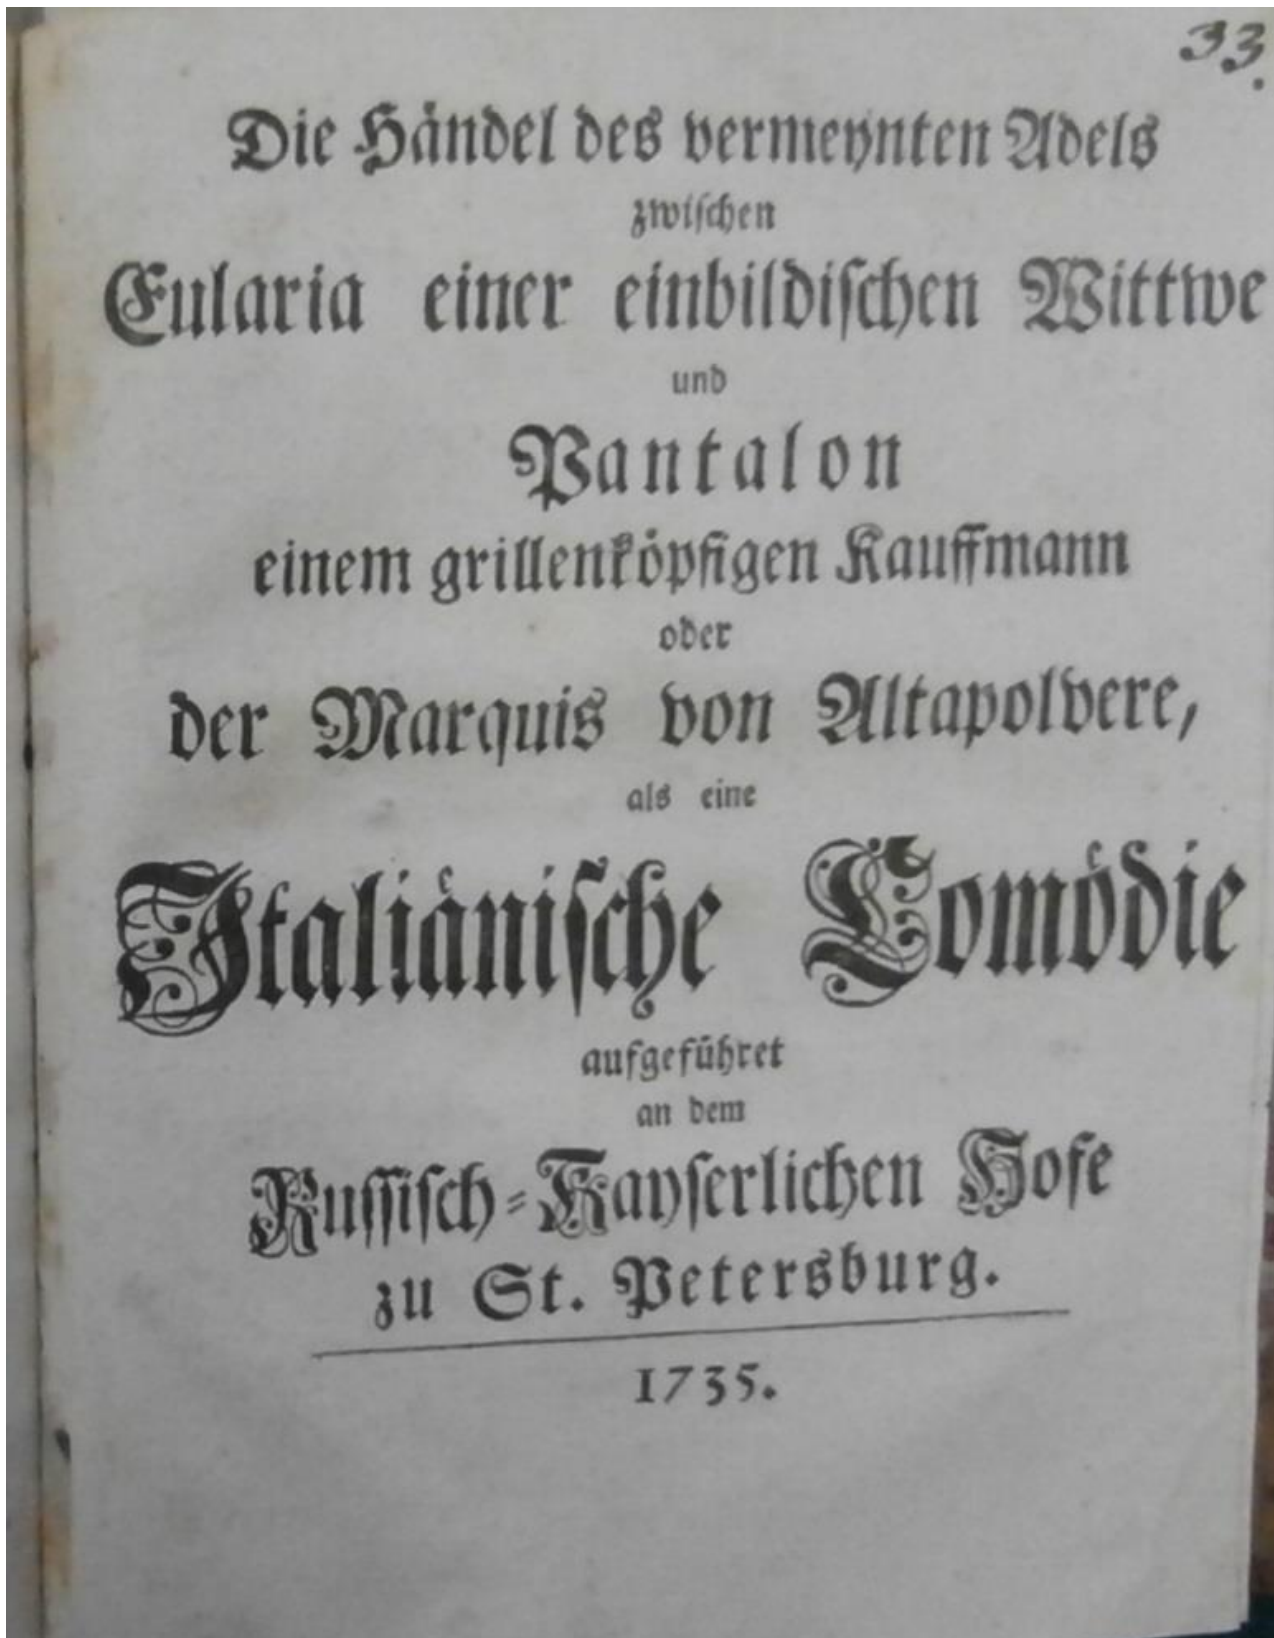 33.
Die Händel des vermeynten Adels
zwischen
Eularia einer einbildischen Wittwe
und
Pantalon
einem grillenköpfigen Kauffmann
oder
der Marquis von Altapolvere,
als eine
Italiänische Comödie
aufgeführet
an dem
Russisch-Kayserlichen Hofe
zu St. Petersburg.
1735.